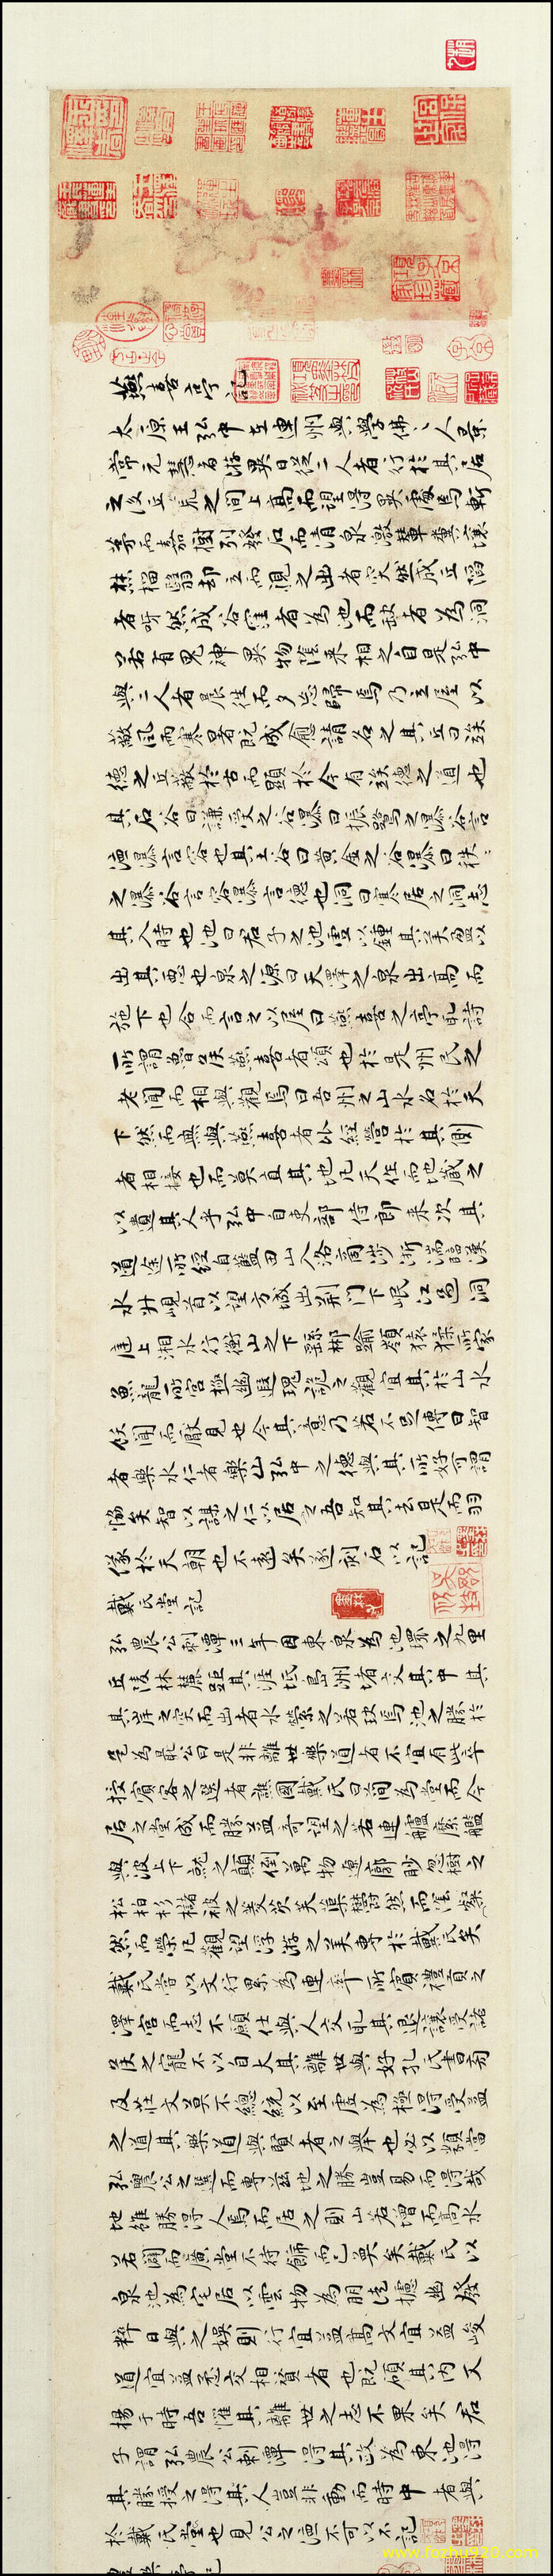 燕喜亭記
太原王弘中在連州與學佛之人景
常元慧者游異日從二人者行於其居
之後丘荒之間上高而望得異處焉斬
茅而嘉樹列發石而清泉激輦糞壤
焚榴翳却立而視之出者突然成丘陷
者呀然成谷窪者為池而缺者為洞
若有鬼神異物陰來相之自是弘中
與二人者晨往而夕忘歸焉乃立屋以
蔽風雨寒暑既成愈請名之其丘曰竢
德之丘蔽於古而顯於今有竢德之道也
其石谷曰謙受之谷瀑曰振鷺之瀑谷言
德瀑言容也其土谷曰黃金之谷瀑曰秩秩
之瀑谷言容瀑言德也洞曰寒居之洞志
其入時也池曰君子之池虛以鍾其美盈以
出其惡也泉之源曰天澤之泉出高而
施下也合而言之以屋曰燕喜之亭取詩
所謂魯侯燕喜者頌也於是州民之
老聞而相與觀焉曰吾州之山水名於天
下然而無與燕喜者比經營於其側
者相接也而莫直其地凡天作而地藏之
以遺其人乎弘中自吏部侍郎來次其
道途所經自藍田山入洛商涉淅湍臨漢
水升峴首以望方城出荊門下岷江過洞
庭上湘水行衡山之下繇郴踰嶺猿狖所家
魚龍所宮極幽遐瑰詭之觀宜其於山水
飫聞而厭見也今其意乃若不足傳曰智
者樂水仁者樂山弘中之德與其所好可謂
恊矣智以謀之仁以居之吾知其去是而羽
儀於天朝也不遠矣遂刻石以記
戴氏堂記
弘農公刺潭三年因東泉為池環之九里
丘陵林麓距其涯坻島洲渚交其中其
其岸之突而出者水縈之若玦焉池之勝於
是為最公曰是非離世樂道者不宜有此卒
授賓客之選者譙國戴氏曰簡為堂而今
居之堂成而勝益奇望之若連艫縻艦
與波上下就之顛倒萬物遼廓眇忽樹之
松柏杉櫧被之菱芡芙蕖鬱然而陰粲
然而榮凡觀望浮游之美專於戴氏矣
戴氏嘗以文行累為連率所賓禮貢之
澤宮而志不願仕與人交取其退讓受諸
侯之寵不以自大其離世與好孔氏書旁
及莊文莫不總統以至虛為極得受益
之道其樂道與賢者之舉也必以類當
弘農公之選而專茲地之勝豈易而得哉
地雖勝得人焉而居之則山若增而高水
若闢而廣堂不待飾而已奐矣戴氏以
泉池為宅居以雲物為朋徒攄幽發
粹日與之娛則行宜益高文宜益峻
道宜益懋交相贊者也既碩其內又
揚于時吾懼其離世之志不果矣君
子謂弘農公刺潭得其政為東池得
其勝授之得其人豈非動而時中者與
於戴氏堂也見公之德不可以不記
www.fozhu920.com